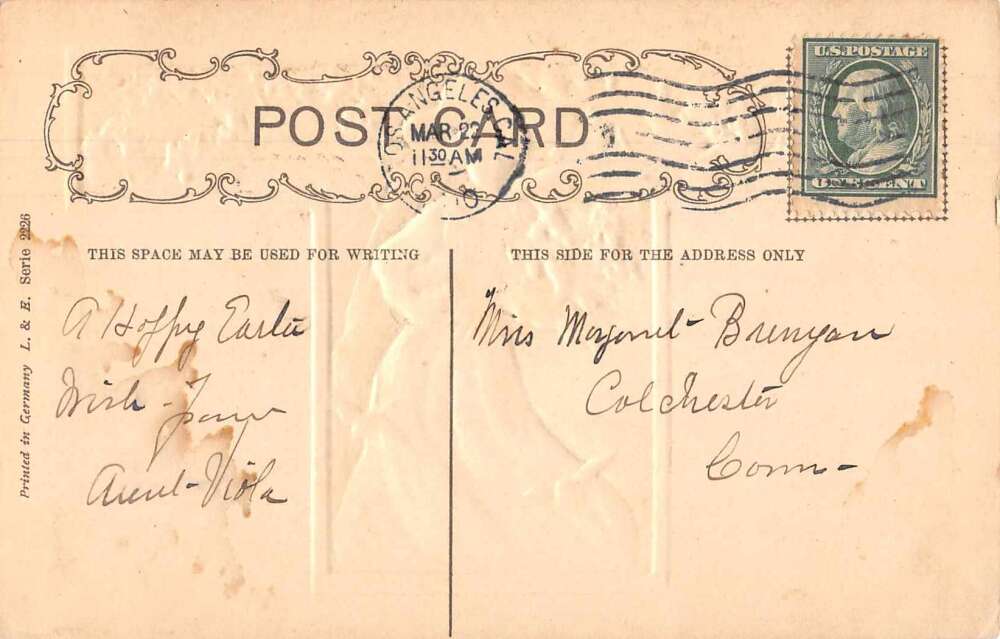 POST CARD
LOS ANGELES CAL
MAR 22
11 30 AM
U.S. POSTAGE
ONE CENT
THIS SPACE MAY BE USED FOR WRITING
THIS SIDE FOR THE ADDRESS ONLY
A Happy Easter
Wish from
Aunt Viola
Miss Margaret Brengan
Colchester
Conn
Printed in Germany L. & E. Serie 2226